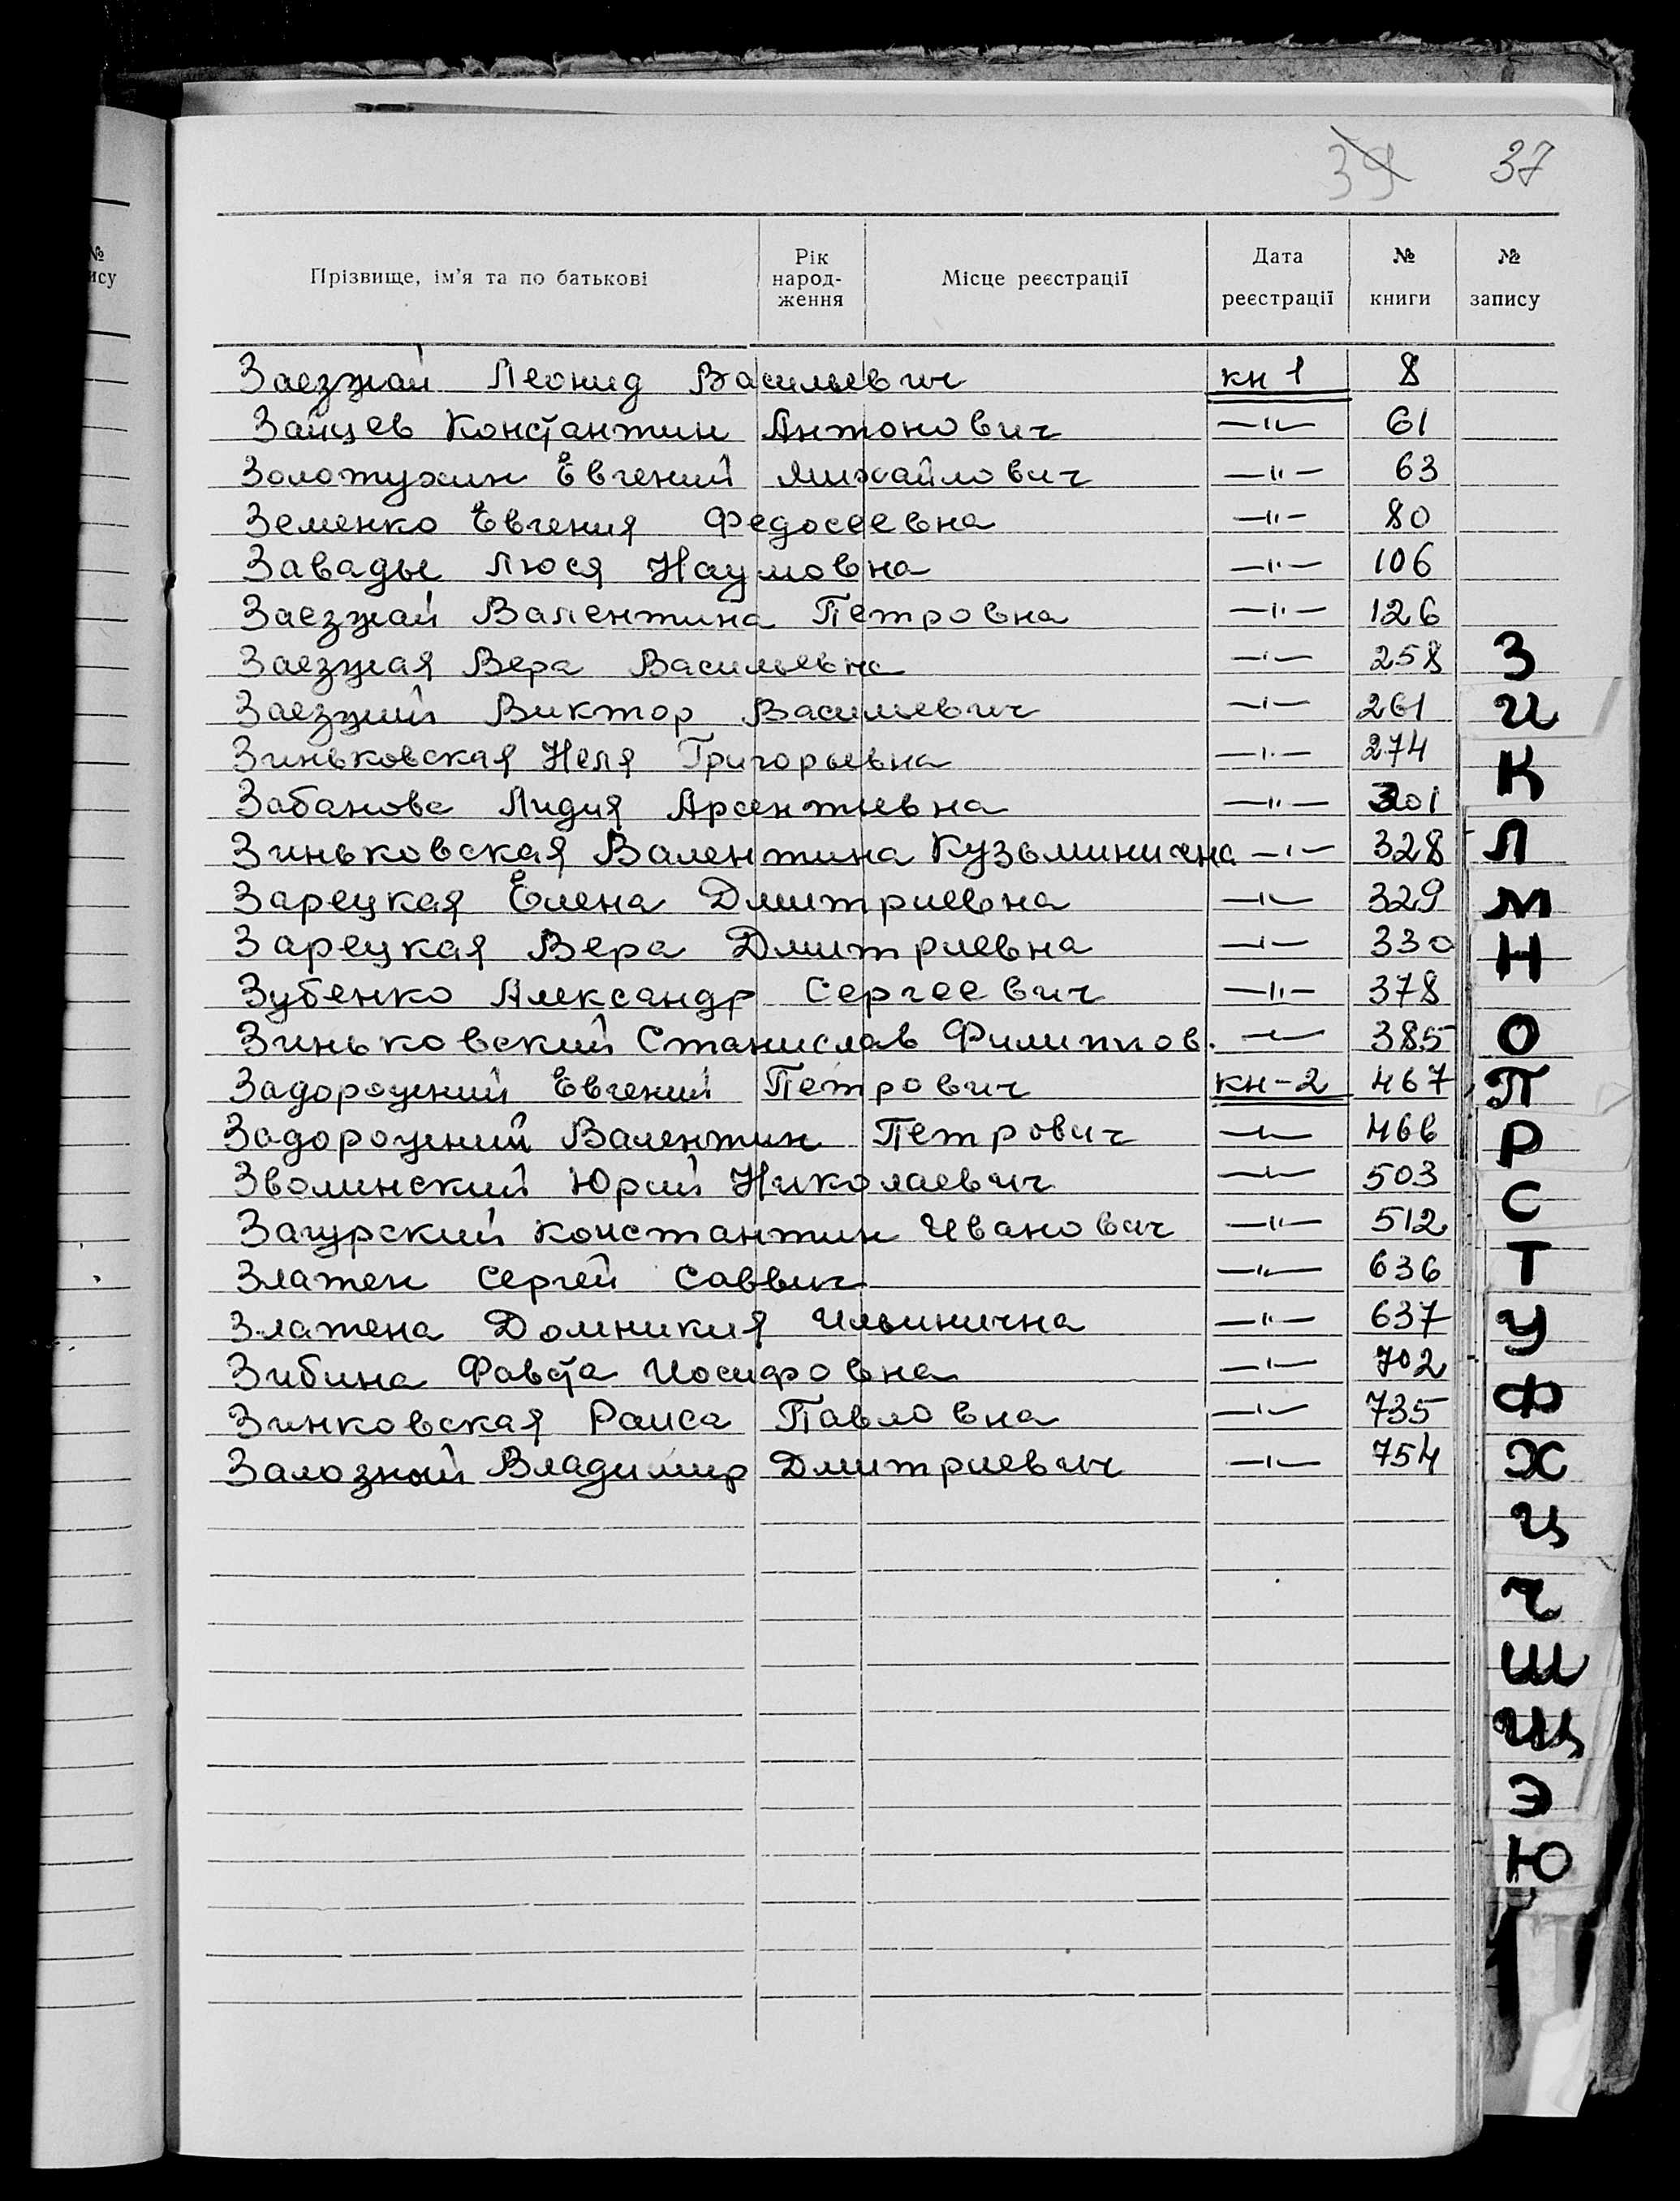 39 37
№
ису
Прізвище, ім'я та по батькові Рік народ-ження Місце реєстрації Дата реєстрації № книги № запису
Заезжай Леонид Васильевич кн 1 8
Зайцев Константин Антонович —"— 61
Золотухин Евгений Михайлович —"— 63
Земенко Евгения Федосеевна —"— 80
Завады Люся Наумовна —"— 106
Заезжай Валентина Петровна —"— 126
Заезжая Вера Васильевна —"— 258
Заезжий Виктор Васильевич —"— 261
Зиньковская Неля Григорьевна —"— 274
Забанова Лидия Арсентьевна —"— 301
Зиньковская Валентина Кузьминична —"— 328
Зарецкая Елена Дмитриевна —"— 329
Зарецкая Вера Дмитриевна —"— 330
Зубенко Александр Сергеевич —"— 378
Зиньковский Станислав Филиппов. —"— 385
Задорожний Евгений Петрович кн-2 467
Задорожний Валентин Петрович —"— 466
Зволинский Юрий Николаевич —"— 503
Загурский Константин Иванович —"— 512
Златен Сергей Саввич —"— 636
Златена Домникия Ильинична —"— 637
Зибина Фавста Иосифовна —"— 702
Зинковская Раиса Павловна —"— 735
Залозный Владимир Дмитриевич —"— 754
З
И
К
Л
М
Н
О
П
Р
С
Т
У
Ф
Х
Ц
Ч
Ш
Щ
Э
Ю